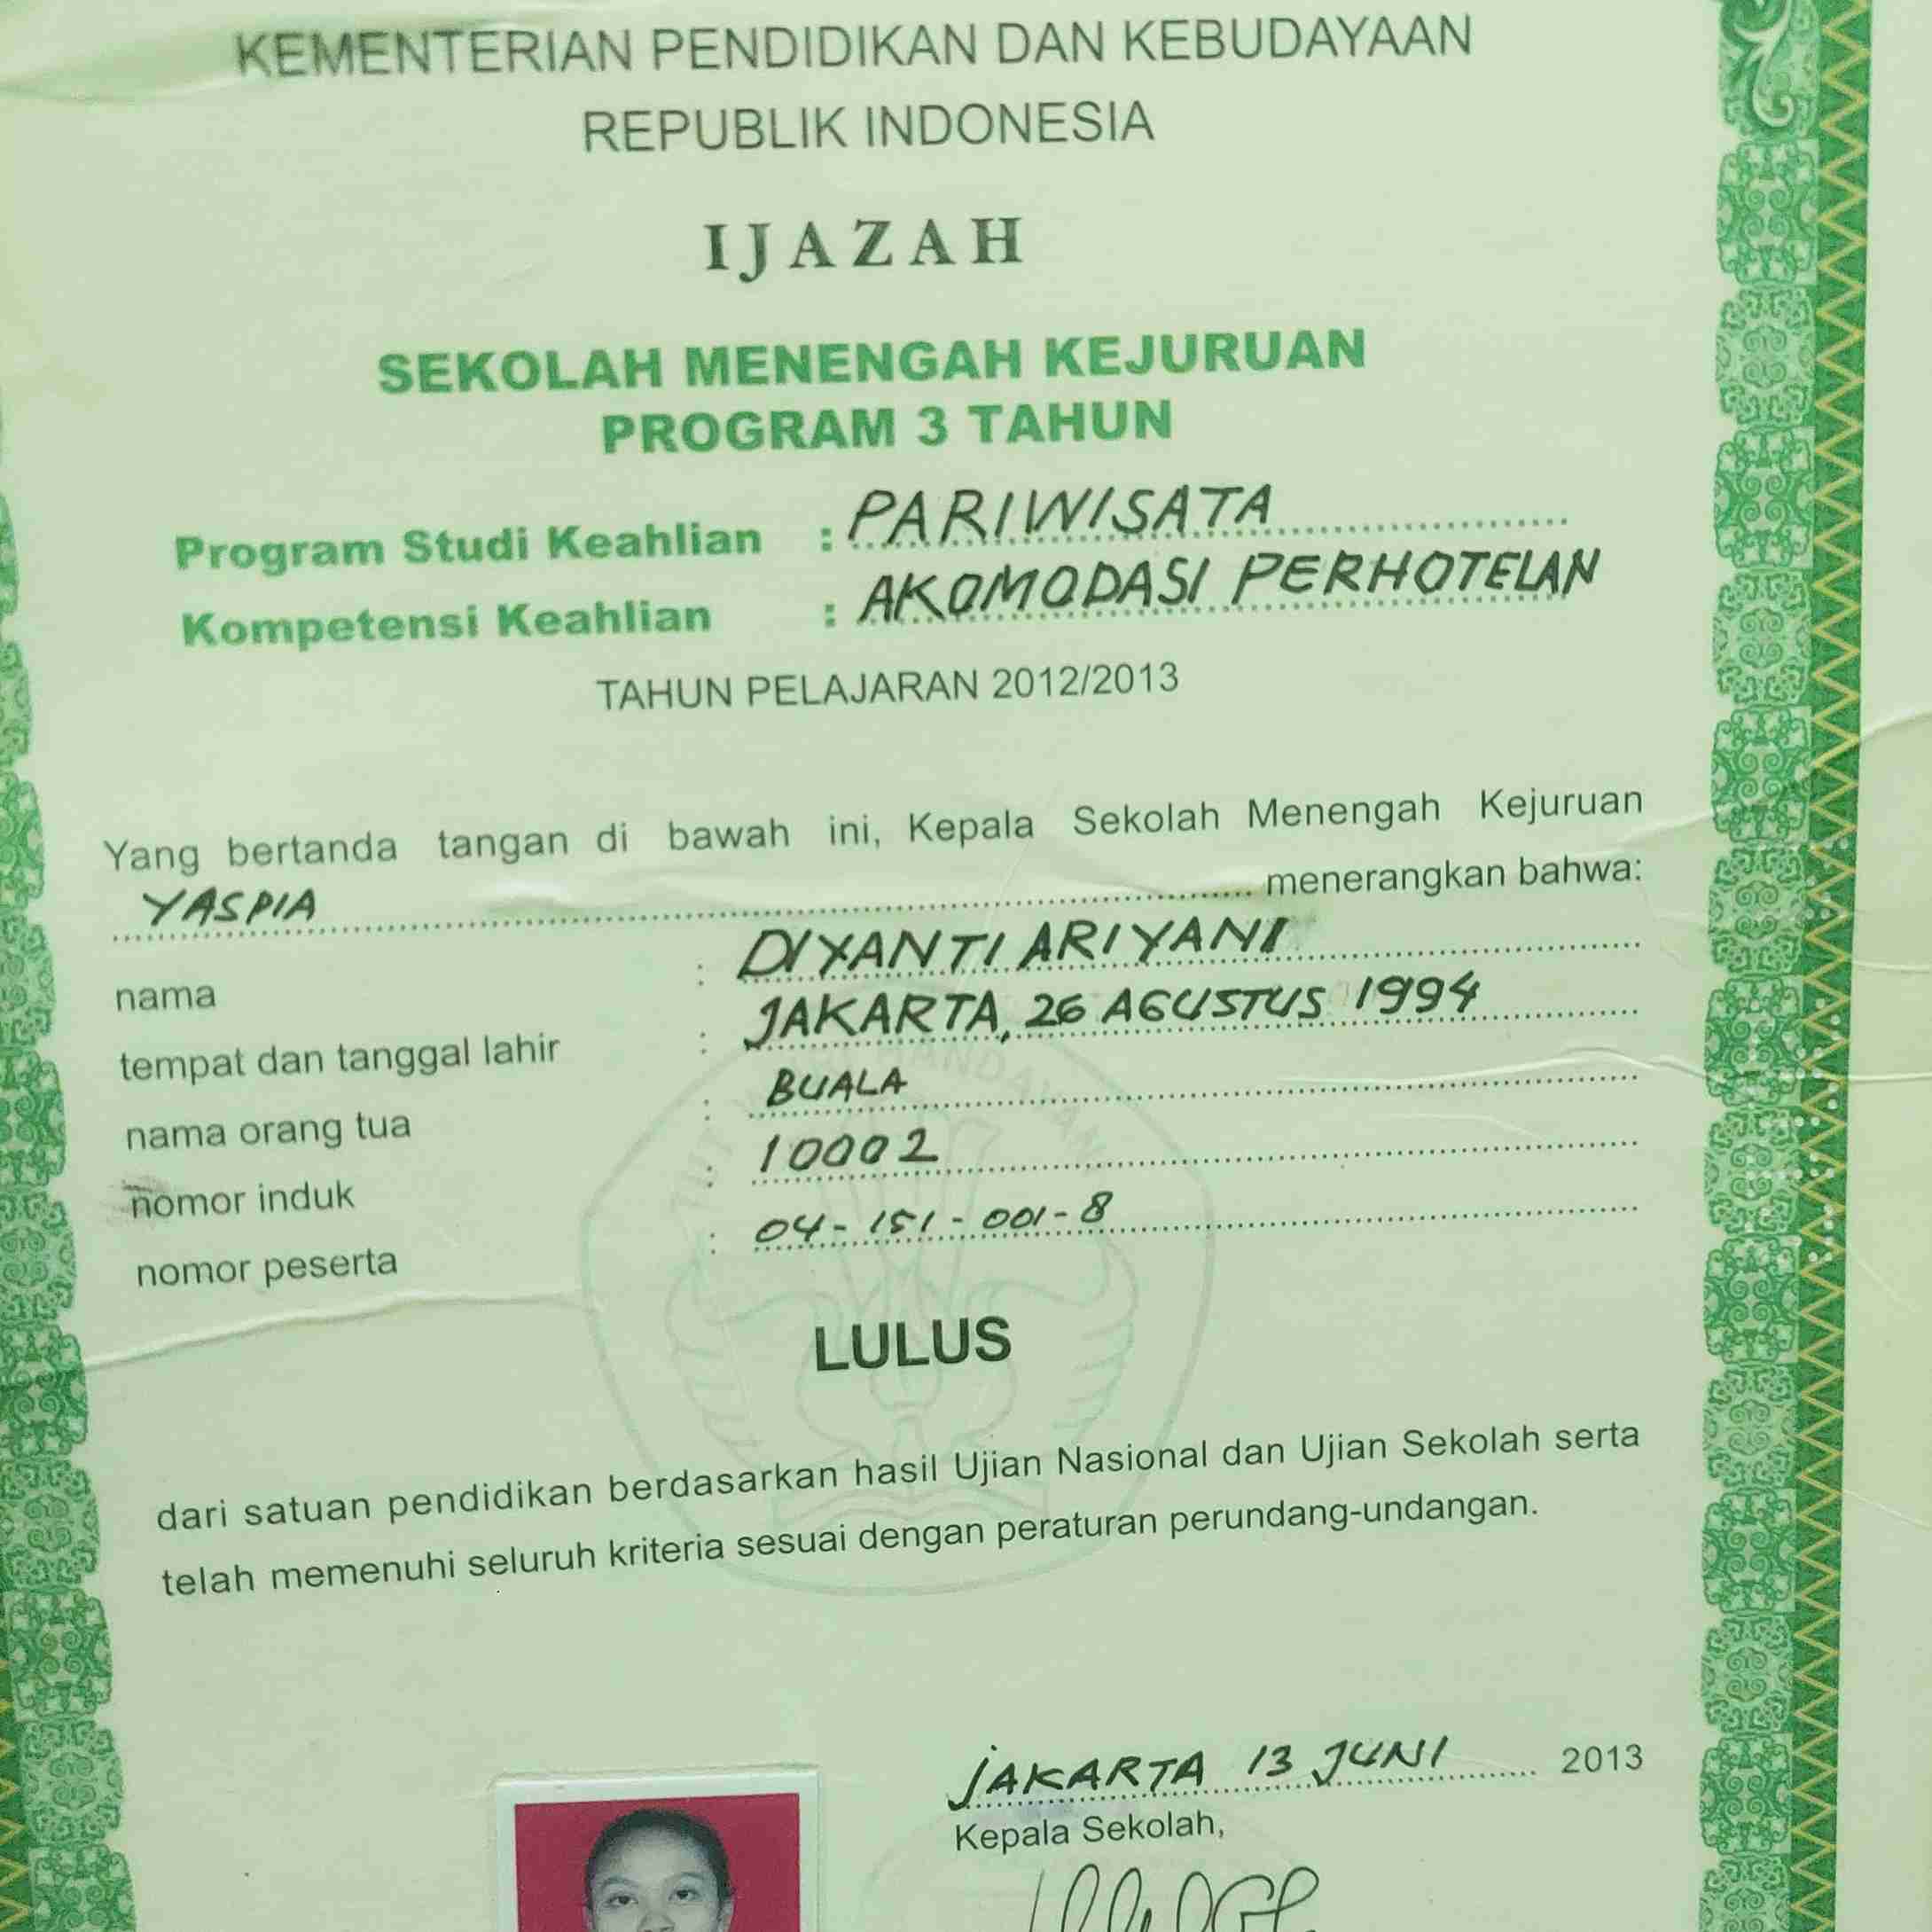 KEMENTERIAN PENDIDIKAN DAN KEBUDAYAAN
REPUBLIK INDONESIA
IJAZAH
SEKOLAH MENENGAH KEJURUAN
PROGRAM 3 TAHUN
Program Studi Keahlian : PARIWISATA
Kompetensi Keahlian : AKOMODASI PERHOTELAN
TAHUN PELAJARAN 2012/2013
Yang bertanda tangan di bawah ini, Kepala Sekolah Menengah Kejuruan
YASPIA menerangkan bahwa:
nama : DIYANTI ARIYANI
tempat dan tanggal lahir : JAKARTA, 26 AGUSTUS 1994
nama orang tua : BUALA
nomor induk : 10002
nomor peserta : 04-151-001-8
LULUS
dari satuan pendidikan berdasarkan hasil Ujian Nasional dan Ujian Sekolah serta
telah memenuhi seluruh kriteria sesuai dengan peraturan perundang-undangan.
JAKARTA 13 JUNI 2013
Kepala Sekolah,